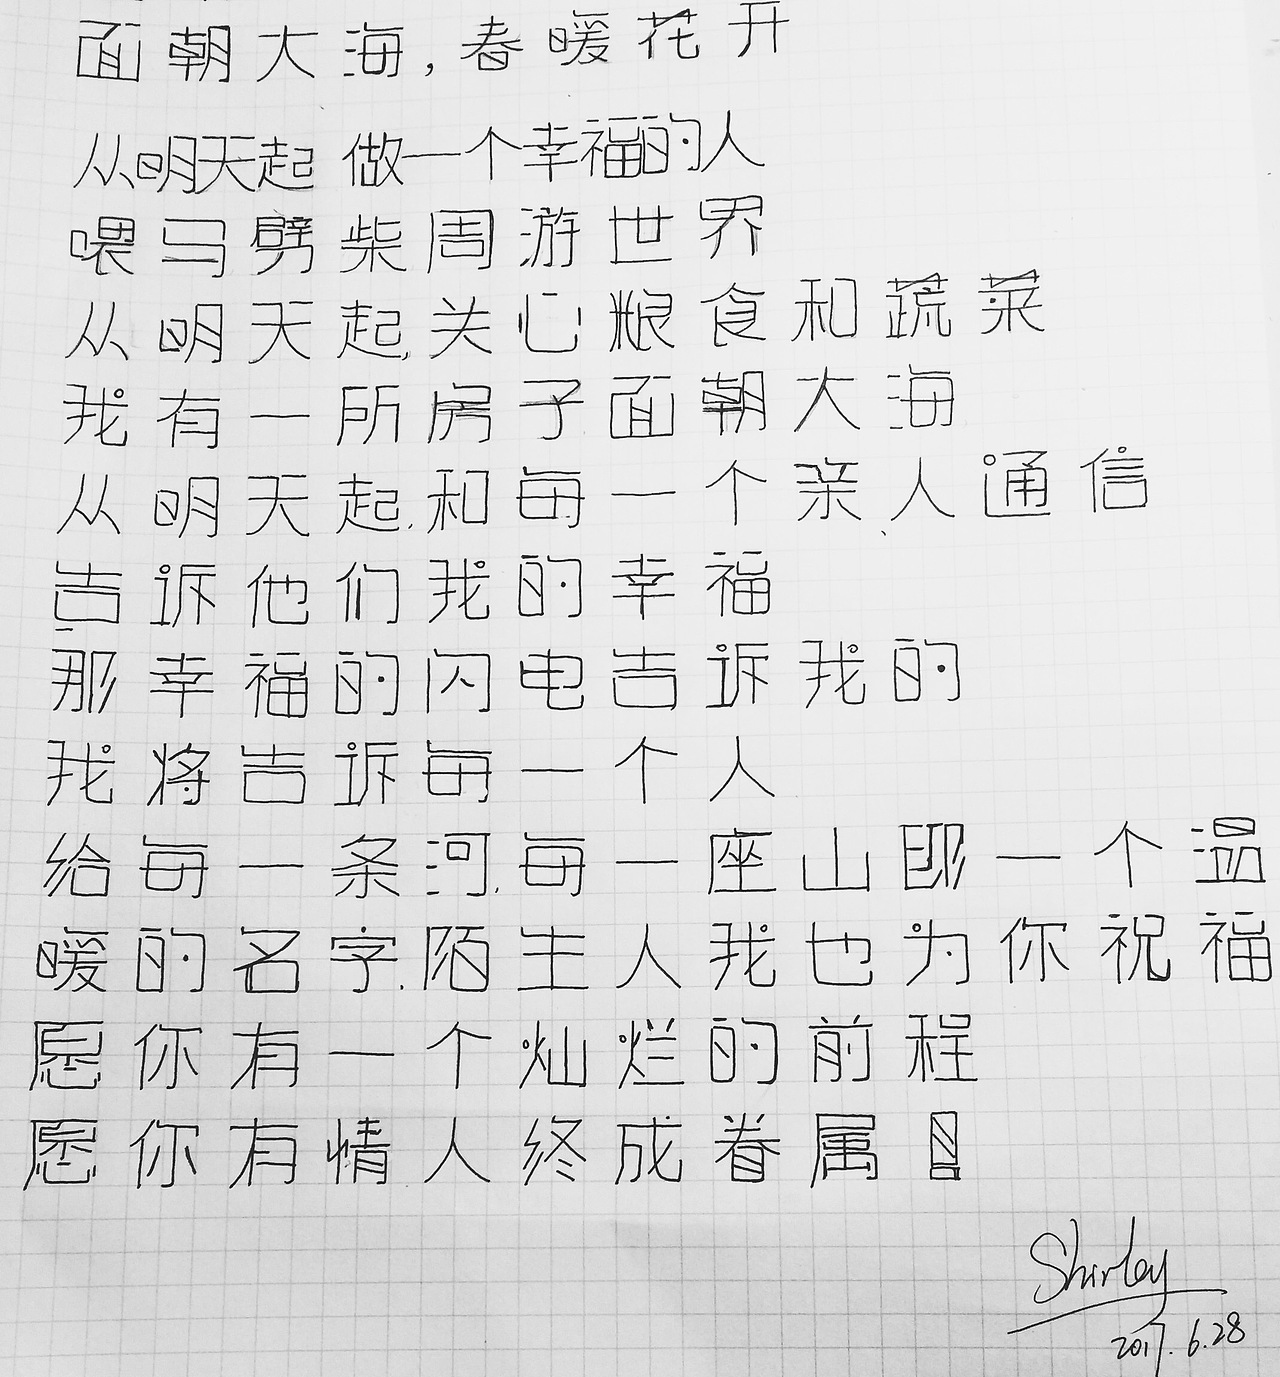 面朝大海,春暖花开
从明天起 做一个幸福的人
喂马劈柴周游世界
从明天起,关心粮食和蔬菜
我有一所房子面朝大海
从明天起,和每一个亲人通信
告诉他们我的幸福
那幸福的闪电告诉我的
我将告诉每一个人
给每一条河,每一座山即一个温
暖的名字,陌生人我也为你祝福
愿你有一个灿烂的前程
愿你有情人终成眷属!
Shirley
2017.6.28